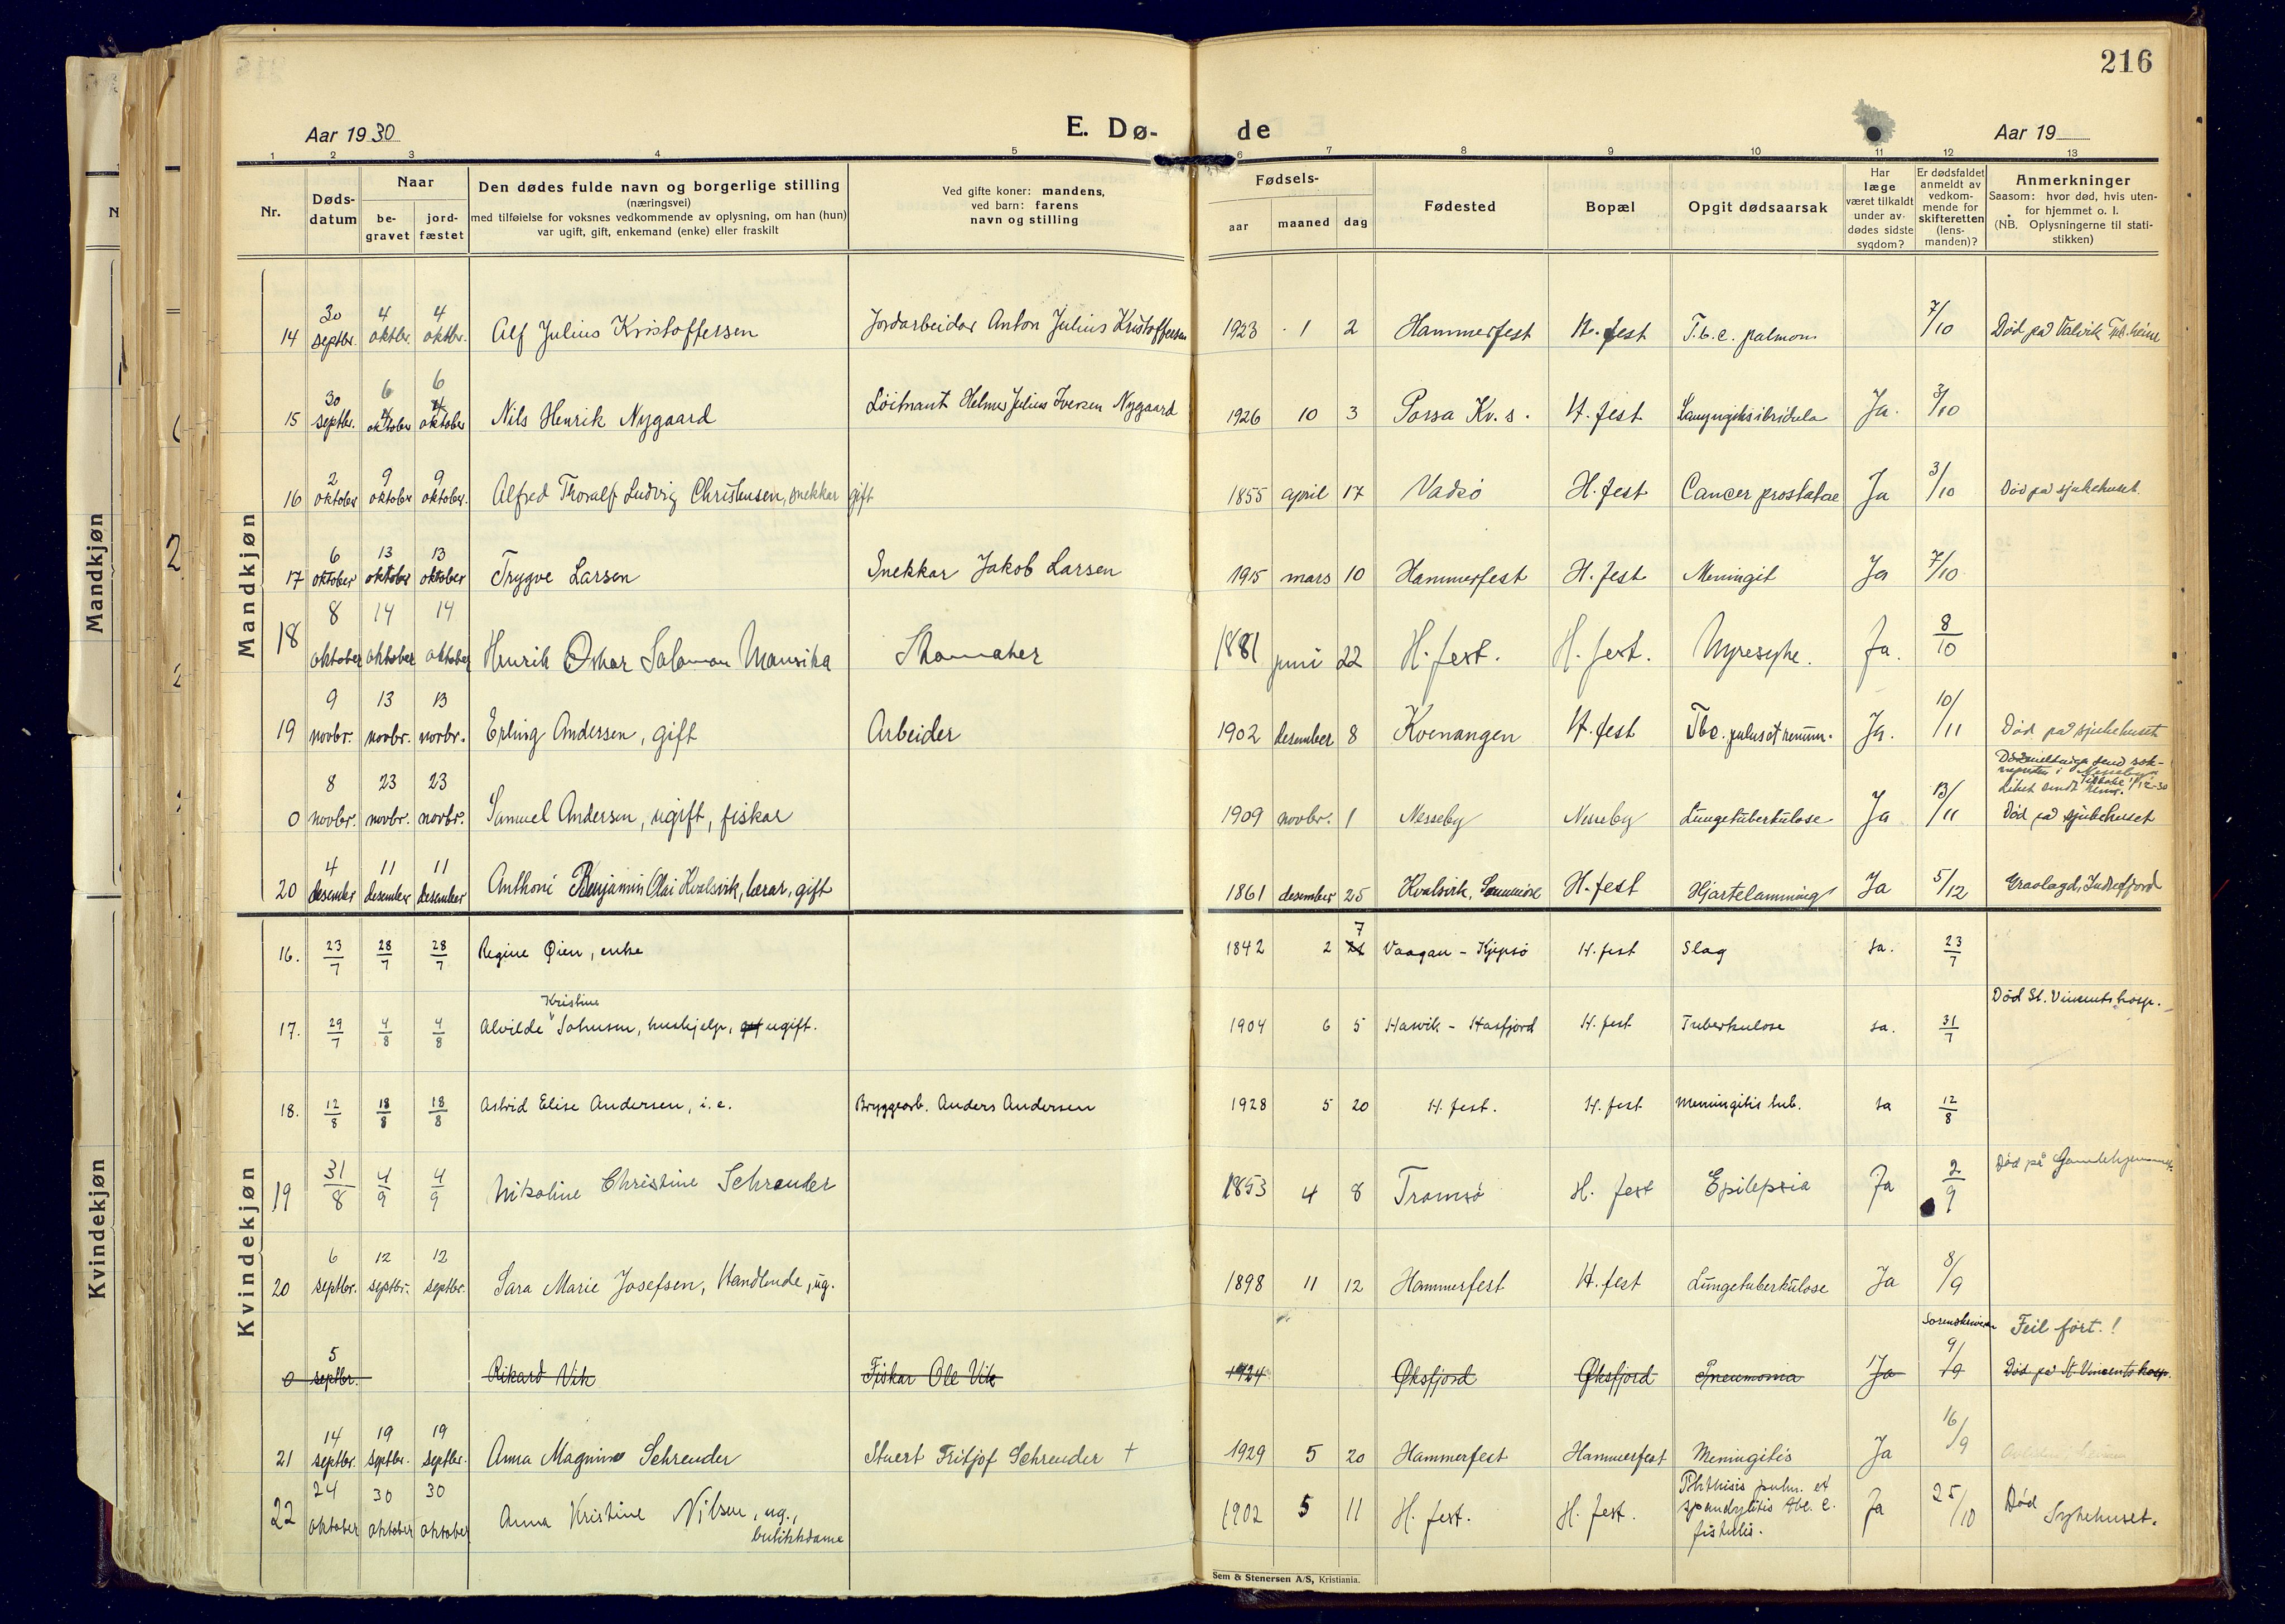 216
Aar 1930 E. Dø- de Aar 19
1 2 3 4 5 6 7 8 9 10 11 12 13
Nr.
Døds-
datum
Naar
be-
gravet
jord-
fæstet
Den dødes fulde navn og borgerlige stilling
(næringsvei)
med tilføielse for voksnes vedkommende av oplysning, om han (hun)
var ugift, gift, enkemand (enke) eller fraskilt
Ved gifte koner: mandens,
ved barn: farens
navn og stilling
Fødsels-
aar maaned dag
Fødested
Bopæl
Opgit dødsaarsak
Har
læge
været tilkaldt
under av-
dødes sidste
sygdom?
Er dødsfaldet
anmeldt av
vedkom-
mende for
skifteretten
(lens-
manden)?
Anmerkninger
Saasom: hvor død, hvis uten-
for hjemmet o. l.
(NB. Oplysningerne til stati-
stikken)
Mandkjøn
Mandkjøn
14 30 septbr. 4 oktbr. 4 oktbr. Alf Julius Kristoffersen Jordarbeidar Anton Julius Kristoffersen 1923 1 2 Hammerfest H.fest T.b.c. pulmon. 7/10 Død på Valvik Tub.heim
15 30 septbr. 6 oktober 6 oktober Nils Henrik Nygaard Løitnant Helmer Julius Iversen Nygaard 1926 10 3 Porsa Kv. s. H.fest Ja. 3/10
16 2 oktober 9 oktober 9 oktober. Alfred Thoralf Ludvig Christensen, snekkar gift 1855 april 17 Vadsø H.fest Cancer prostatae Ja 3/10 Død på sjukehuset.
17 6 oktober 13 oktober 13 oktober Trygve Larsen Snekkar Jakob Larsen 1915 mars 10 Hammerfest H.fest Meningit Ja 7/10
18 8 oktober 14 oktober 14 oktober Henrik Oskar Salomon Mausika Skomaker 1881 juni 22 H.fest. H.fest. Nyresyke. Ja. 8/10
19 9 novbr. 13 novbr. 13 novbr. Erling Andersen, gift Arbeider 1902 desember 8 Kvenangen H.fest Tbc. pulm et renum. Ja. 10/11 Død på sjukehuset
0 8 novbr. 23 novbr. 23 novbr. Samuel Andersen, ugift, fiskar 1909 novbr. 1 Nesseby Nesseby Lungetuberkulose Ja 13/11 Død på sjukehuset
20 4 desember 11 desember 11 desember Anthoni Benjamin Olai Kvalsvik, lærar, gift 1861 desember 25 Kvalsvik, Sunnmøre H.fest Hjartelamming Ja 5/12 Gravlagd, Indrefjord
Kvindekjøn
Kvindekjøn
16. 23/7 28/7 28/7 Regine Øien, enke 1842 2 7 Vaagan - Kjepsø H.fest Slag Ja. 23/7
Kristine
17. 29/7 4/8 4/8 Alvilde Johnsen, hushjelp, gift ugift. 1904 6 5 Hasvik - Hasfjord H.fest Tuberkulose Ja. 31/7 Død St. Vincents hosp.
18. 12/8 18/8 18/8 Astrid Elise Andersen, i.e. Bryggearb. Anders Andersen 1928 5 20 H.fest. H.fest Meningitis tub. Ja 12/8
19 31/8 4/9 4/9 Nikoline Christine Schrøuder 1853 4 8 Tromsø H.fest Epilepsia Ja 2/9 Død på Gamlehjemmet
20 6 septbr. 12 septbr. 12 septbr. Sara Marie Josefsen, Handlende, ug. 1898 11 12 Hammerfest H.fest Lungetuberkulose Ja 8/9
Sorenskriveren Feil ført.!
0 5 septbr. Rikard Vik Fiskar Ole Vik 1924 Øksfjord Øksfjord Pneumonia Ja 9/9 Død på St. Vincents hosp.
21 14 septbr. 19 septbr. 19 septbr. Anna Magnine Schreuder Stuert Fritjof Schreuder † 1929 5 20 Hammerfest Hammerfest Meningitis Ja 16/9
22 24 oktober 30 oktober 30 oktober Anna Kristine Nilsen, ug., butikkdame 1902 5 11 H.fest. H.fest. Phthisis pulm. et spondylitis tbc. c. fistulis. Ja 25/10 Død Sykehuset.
Sem & Stenersen A/S, Kristiania.